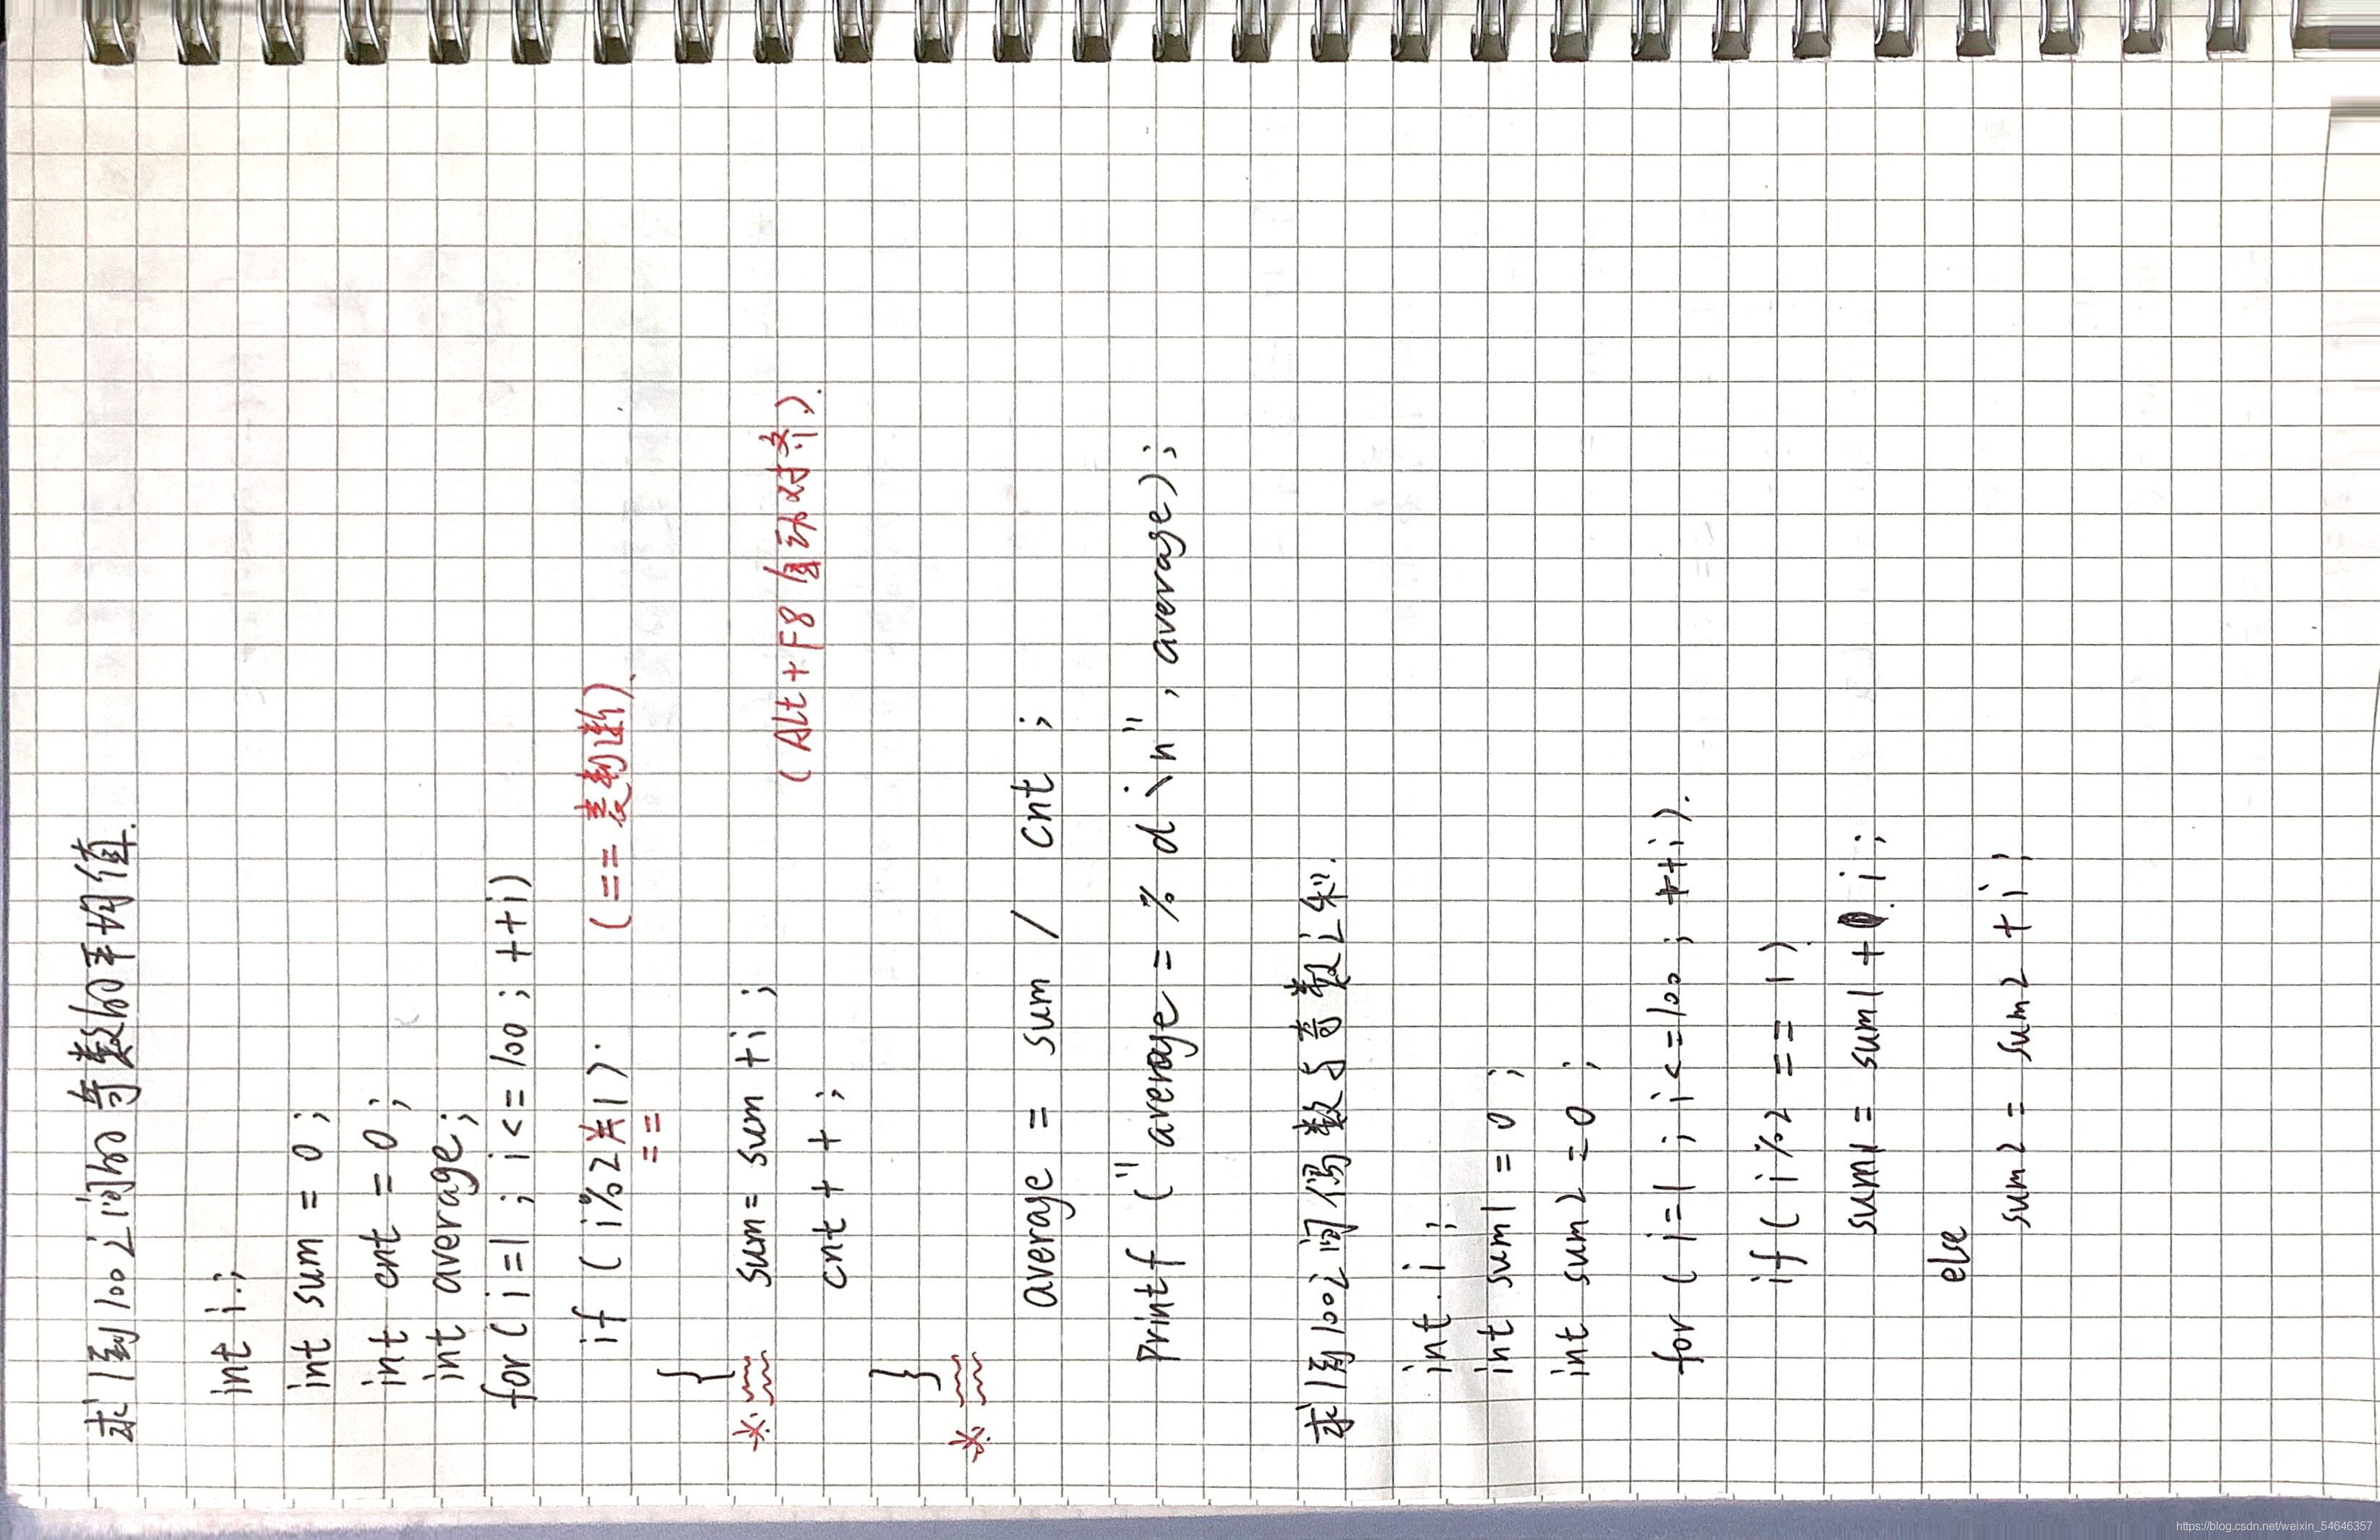 求1到100之间的奇数的平均值.
int i;
int sum = 0;
int cnt = 0;
int average;
for (i=1; i<=100; ++i)
if (i%2=1). (== 表判断).
==
{
* sum = sum + i;
(Alt + F8 自动对齐).
cnt ++;
}
*
average = sum / cnt;
Printf ("average = %d\n", average);
求1到100之间偶数与奇数之和.
int i;
int sum1 = 0;
int sum2 = 0;
for (i=1; i<=100; ++i).
if (i%2 == 1)
sum1 = sum1 + i;
else
sum2 = sum2 + i;
https://blog.csdn.net/weixin_54646357